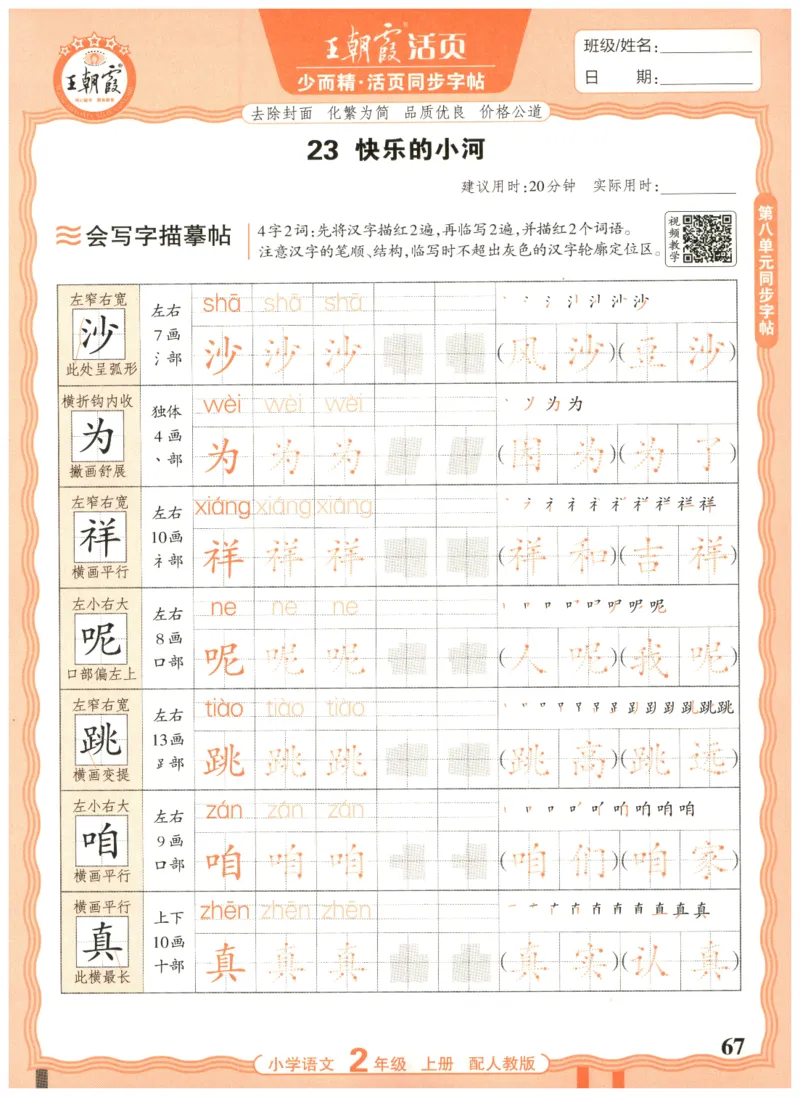 王朝霞®活页
少而精·活页同步字帖
王朝霞
班级/姓名:
日 期:
去除封面 化繁为简 品质优良 价格公道
23 快乐的小河
建议用时:20分钟 实际用时:
会写字描摹帖
4字2词:先将汉字描红2遍,再临写2遍,并描红2个词语。
注意汉字的笔顺、结构,临写时不超出灰色的汉字轮廓定位区。
视频教学
第八单元同步字帖
左窄右宽
沙
此处呈弧形
左右
7画
氵部
shā shā shā
沙 沙 沙 (风沙)(豆沙)
横折钩内收
为
撇画舒展
独体
4画
丶部
wèi wèi wèi
为 为 为 (因为)(为了)
左窄右宽
祥
横画平行
左右
10画
礻部
xiáng xiáng xiáng
祥 祥 祥 (祥和)(吉祥)
左小右大
呢
口部偏左上
左右
8画
口部
ne ne ne
呢 呢 呢 (人呢)(我呢)
左窄右宽
跳
横画变提
左右
13画
⻊部
tiào tiào tiào
跳 跳 跳 (跳高)(跳远)
左小右大
咱
横画平行
左右
9画
口部
zán zán zán
咱 咱 咱 (咱们)(咱家)
横画平行
真
此横最长
上下
10画
十部
zhēn zhēn zhēn
真 真 真 (真实)(认真)
67
小学语文 2年级 上册 配人教版